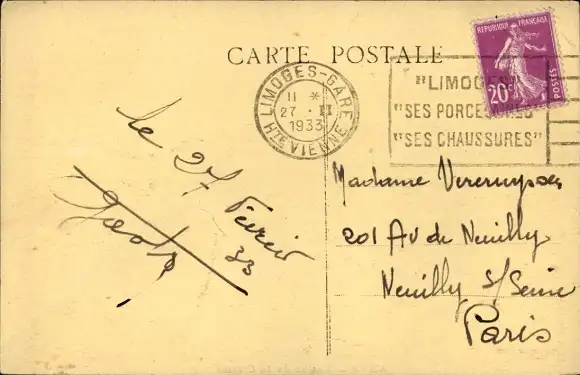 CARTE POSTALE
RÉPUBLIQUE FRANÇAISE
20c
POSTES
LIMOGES-GARE
11 *
27 · II
1933
HTE VIENNE
"LIMOGES"
"SES
"SES CHAUSSURES"
le 27 Février
33
Madame
201 Av de Neuilly
Neuilly s/Seine
Paris